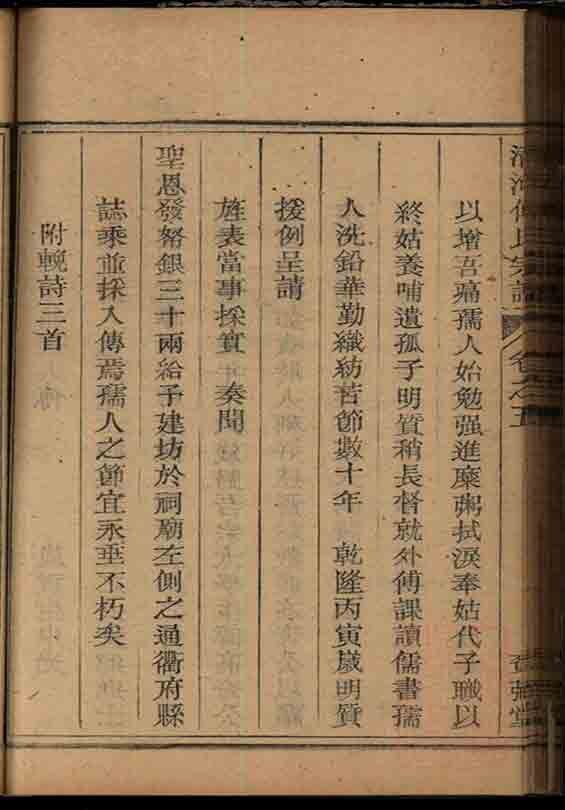 清河傅氏宗譜 卷之五
以增吾痛孺人始勉强進糜粥拭淚奉姑代子職以
終姑養哺遺孤子明質稍長督就外傅課讀儒書孺
人洗鉛華勤織紡苦節數十年 乾隆丙寅歲明質
援例呈請
旌表當事採實 奏聞
聖恩發帑銀三十兩給予建坊於祠廟左側之通衢府縣
誌乘並採入傳焉孺人之節宜永垂不朽矣
附輓詩三首